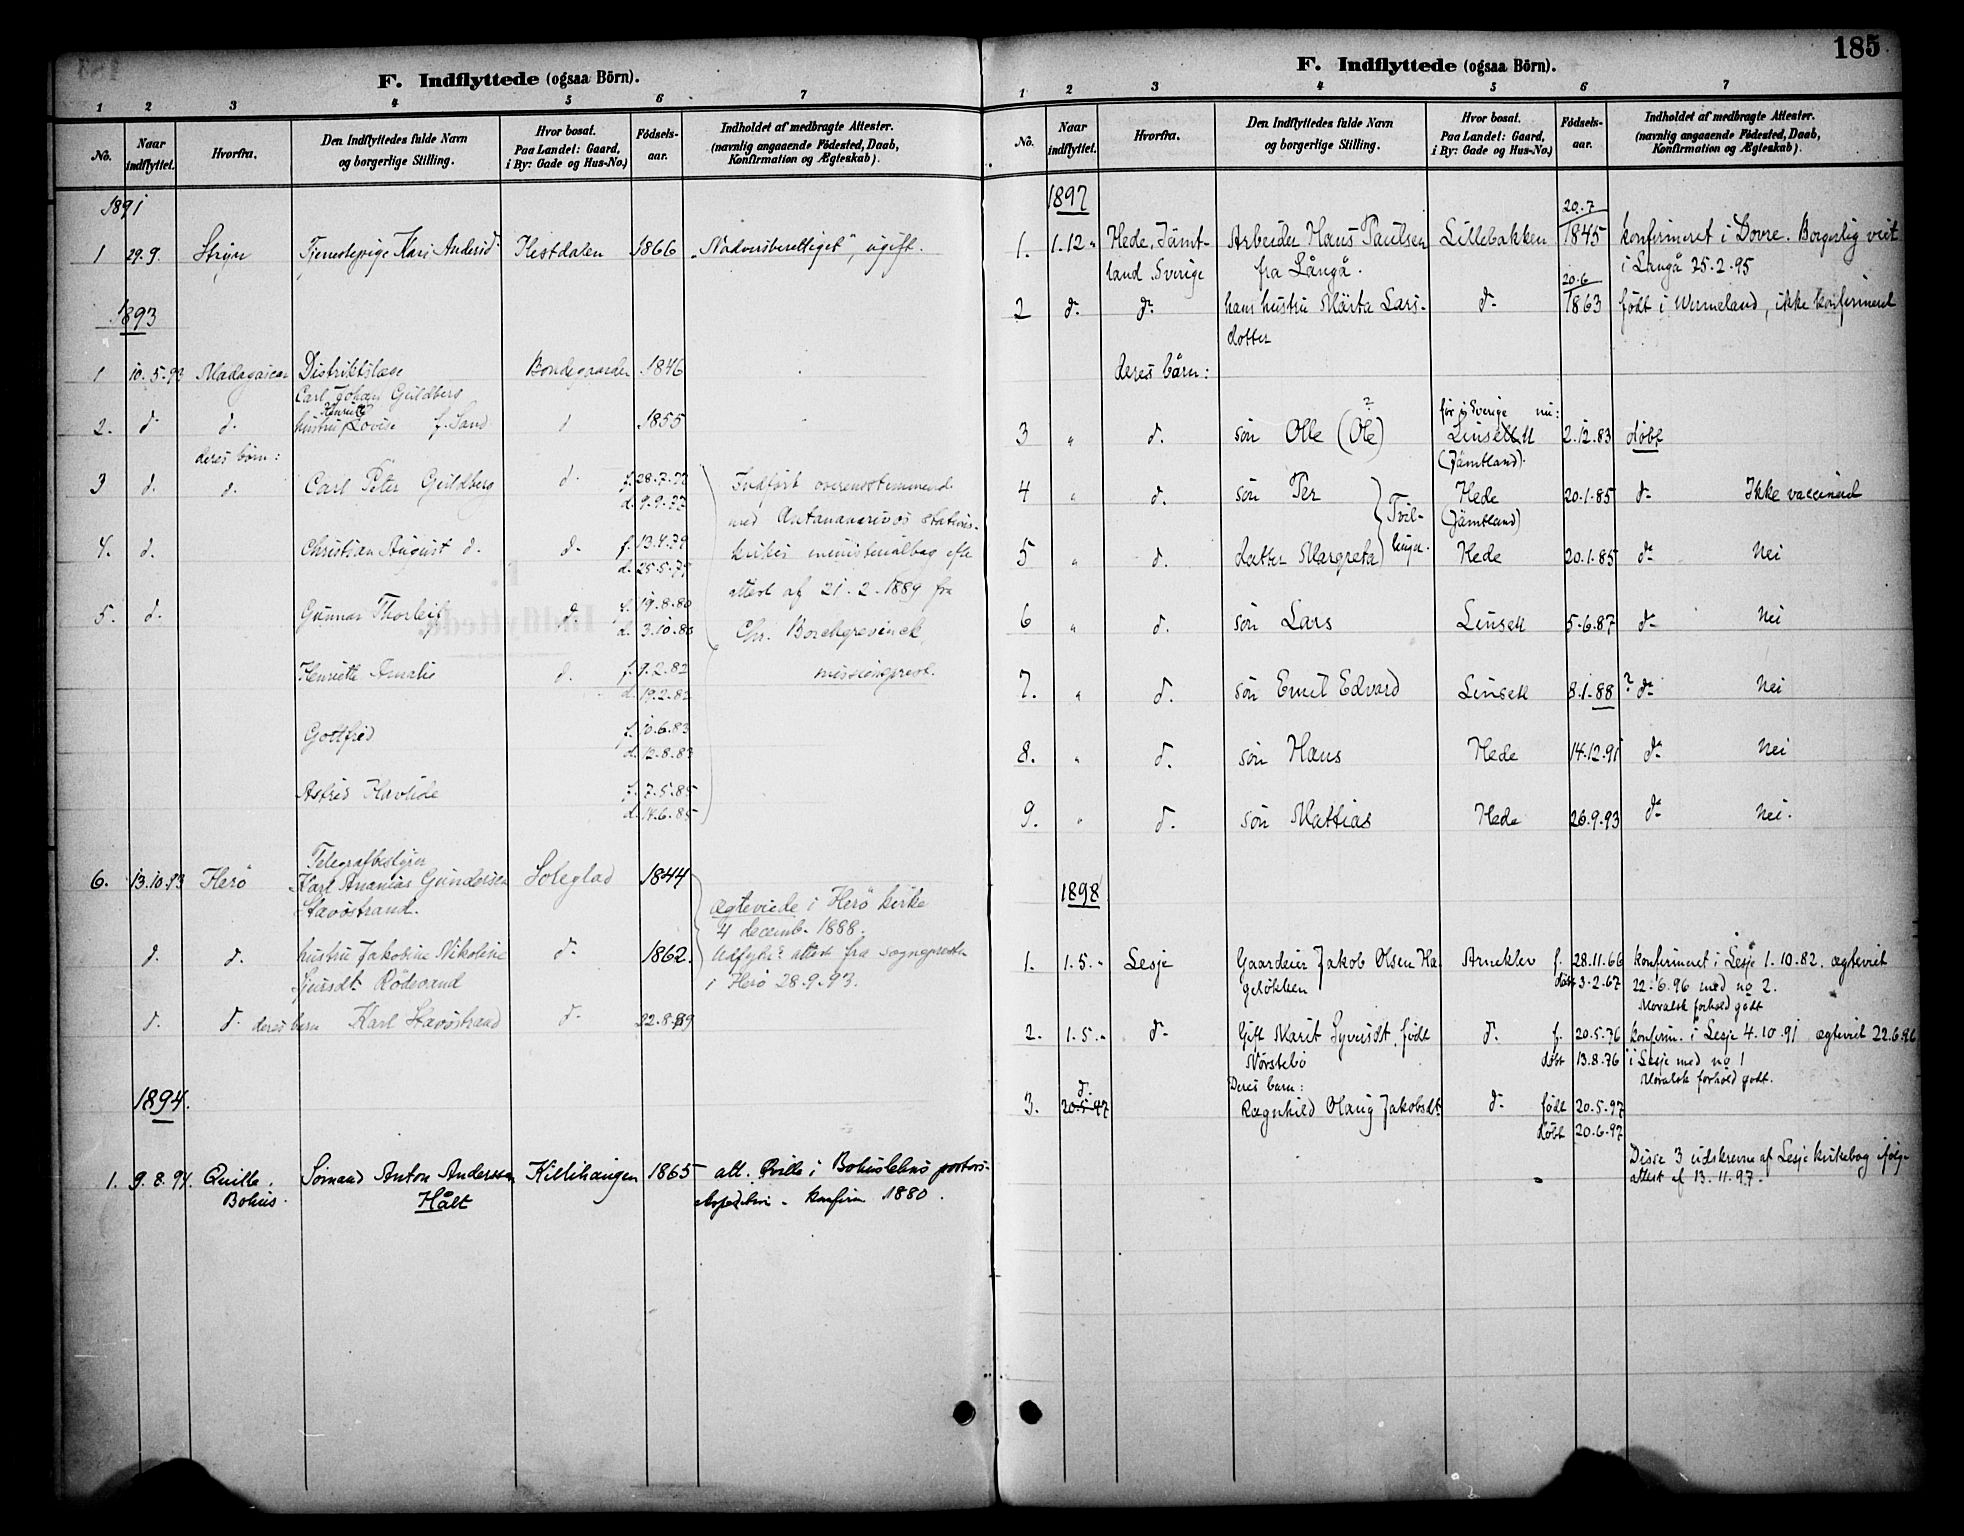 F. Indflyttede (ogsaa Börn).
1 2 3 4 5 6 7
No.
Naar indflyttet.
Hvorfra.
Den Indflyttedes fulde Navn
og borgerlige Stilling.
Hvor bosat.
Paa Landet: Gaard,
i By: Gade og Hus-No.)
Födsels-
aar.
Indholdet af medbragte Attester.
(navnlig angaaende Födested, Daab,
Konfirmation og Ægteskab).
1891
1 29.9. Stryn Tjenestepige Kari Andersd. Hestdalen 1866 „Nadversberettiget", ugift.
1893
1 10.5.93 Madagascar Distriktslæge Bondegaarden 1846
Carl Johan Guldberg
Henriette
2. d. d. hustru Lovise f. Sand d 1855
deres börn:
3 d. d. Carl Peter Guldberg d. f. 28.7.77 Indført overensstemmende
d. 9.9.77 med Antananarivos
4. d. Christian August d. d. f. 13.4.79 ministerialbog efter
d. 25.5.79 attest af 21.2.1889 fra
5. d. Gunnar Thorleif d. f. 19.8.80
d. 3.10.80 Chr. Borchgrevinck,
Henriette Amalie d. f. 9.2.82 missionsprest.
d. 19.2.82
Gottfred f. 10.6.83
d. 12.8.83
Astrid Havlide f. 7.5.85
d. 14.6.85
Telegrafbestyrer
6. 13.10.93 Herö Karl Ananias Gundersen Soleglad 1844
Stavöstrand.
ægteviede i Herö kirke
4 decemb. 1888.
d. d. hustru Jakobine Nikoline d. 1862. Udflytn. attest fra sognepresten
Sjursdt. Rödesand i Herö 28.9.93.
d. d. deres barn Karl Stavöstrand d. 22.8.89
1894.
1. 9.8.94. Quille, Sömand Anton Anderssen Killihaugen 1865 att. Qville i Bohusléns pastors-
Bohus. Hált expedition. konfirm 1880.
185
F. Indflyttede (ogsaa Börn).
1 2 3 4 5 6 7
No.
Naar
indflyttet.
Hvorfra.
Den Indflyttedes fulde Navn
og borgerlige Stilling.
Hvor bosat.
Paa Landet: Gaard,
i By: Gade og Hus-No.)
Födsels-
aar.
Indholdet af medbragte Attester.
(navnlig angaaende Födested, Daab,
Konfirmation og Ægteskab).
1897
20.7
1. 1.12. Hede, Jämt- Arbeider Hans Paulsen Lillebakken 1845 konfirmeret i Dovre. Borgerlig viet
land, Sverige fra Långå. i Langå 25.2.95
20.6
2 d. d. hans hustru Märta Lars- d. 1863 født i Wermeland, ikke konfirmeret
dotter
deres bårn:
før i Sverige nu:
3 " d. sön Olle (Ole) ? Linsell 2.12.83 döbt
(Jämtland).
4 " d. sön Per Hede 20.1.85 d. Ikke vaccineret
Tvil- (Jämtland)
5 " d. datter Margreta linger. Hede 20.1.85 d. Nei
6 " d. sön Lars Linsell 5.6.87 d. Nei
7. " d. sön Emil Edvard Linsell 8.1.88 ? d. Nei
8. " d. sön Hans Hede 14.12.91 d. Nei
9. " d. sön Mattias Hede 26.9.93 d. Nei.
1898
1. 1.5. Lesje Gaardeier Jakob Olsen Ha- Arneklev f. 28.11.66 konfirmeret i Lesje 1.10.82. ægteviet
gelökken döbt 3.2.67 22.6.96 med no 2.
Moralsk forhold godt
2. 1.5. d. Gift Marit Syversdt, født d. f. 20.5.76 konfirm. i Lesje 4.10.91 ægteviet 22.6.96
Nörstebö döbt 13.8.76 i Lesje med no 1
Moralsk forhold godt.
d. Deres barn:
3. 20.5.97 Ragnhild Olaug Jakobsdt d. født 20.5.97
döbt 20.6.97
Disse 3 udskrevne af Lesje kirkebog ifölge
attest af 13.11.97.